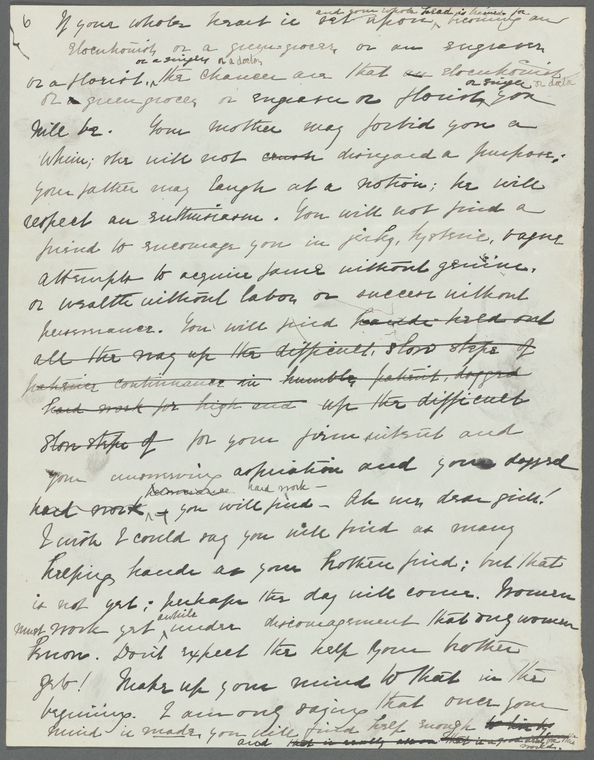 6 If your whole heart is set upon, and your whole head is keen for becoming an
elocutionist or a greengrocer or an engraver
or a florist, or a singer or a doctor the chances are that an elocutionist
or a greengrocer or engraver or florist or singer or doctor you
will be. Your mother may forbid you a
whim; she will not crush disregard a purpose;
your father may laugh at a notion; he will
respect an enthusiasm. You will not find a
friend to encourage you in jerky, hysteric, vague
attempts to acquire fame without genius,
or wealth without labor, or success without
perseverance. You will find hands held out
all the way up the difficult, slow steps of
patient continuance in humble, patient, dogged
hard work for high and up the difficult
slow steps of for your firm intent and
your unswerving aspiration and your dogged
hard work hard work — you will find — Ah me, dear girls!
I wish I could say you will find as many
helping hands as your brothers find; but that
is not yet; perhaps the day will come. Women
must work yet awhile under discouragement that only women
know. Don't expect the help your brother
gets! Make up your mind to that in the
beginning. I am only saying that once your
mind is made, you will find help enough
and that is a good deal for this
world.